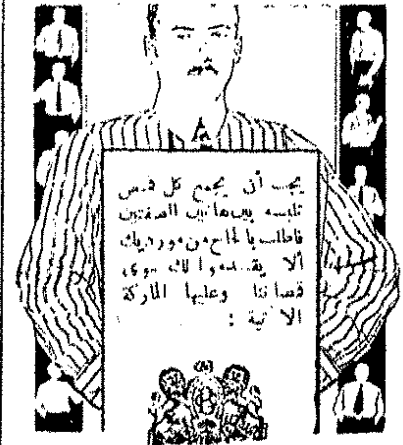 يجب أن يجمع كل قميص
تلبسه بين هاتين الصفتين
فاطلب بالحاح من مورديك
ألا يقدموا لك سوى
قمصاننا وعليها الماركة
الآتية :